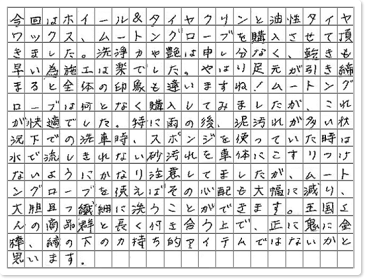 今回はホイール&タイヤクリンと油性タイヤ
ワックス、ムートングローブを購入させて頂
きました。洗浄力や艶は申し分なく、乾きも
早い為施工は楽でした。やはり足元が引き締
まると全体の印象も違いますね!ムートング
ローブは何となく購入してみましたが、これ
が快適でした。特に雨の後、泥汚れが多い状
況下での洗車時、スポンジを使っていた時は
水で流しきれない砂汚れを車体にこすりつけ
ないようにかなり注意してましたが、ムート
ングローブを使えばその心配も大幅に減り、
大胆且つ繊細に洗うことができます。王国さ
んの商品群と長く付き合う上で、正に鬼に金
棒、縁の下の力持ち的アイテムではないかと
思います。